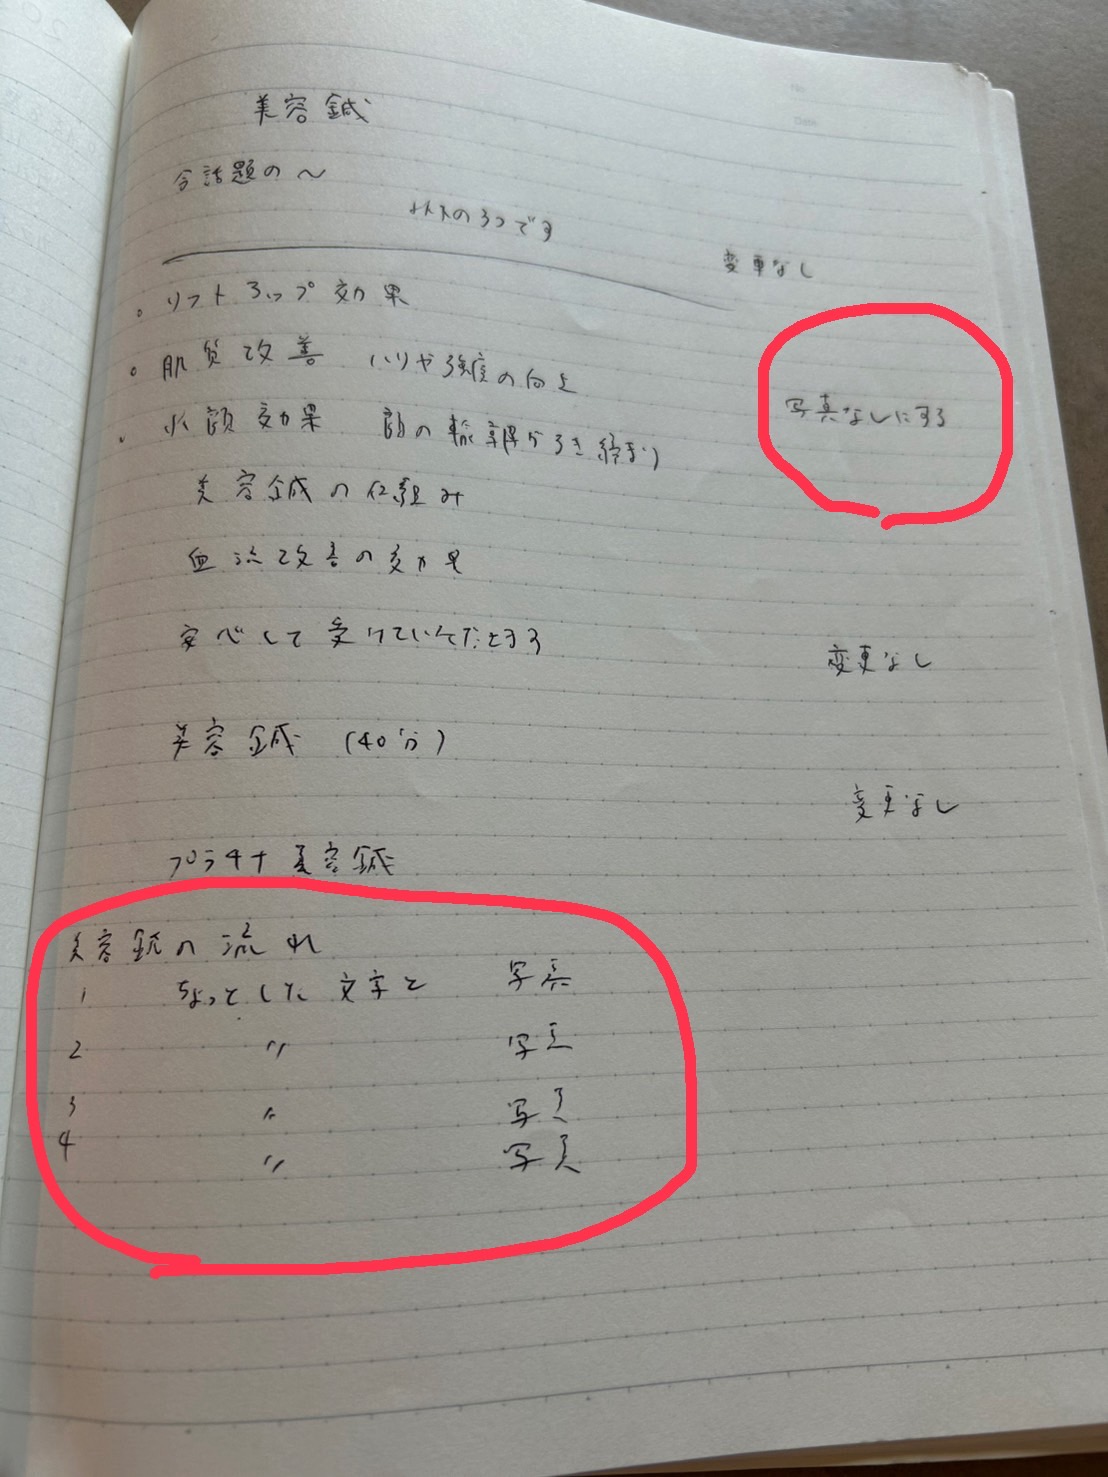 美容鍼
今話題の〜
以下の3つです
変更なし
。リフトアップ効果
。肌質改善 ハリや強度の向上
写真なしにする
。小顔効果 顔の輪郭が引き締まり
美容鍼の仕組み
血流改善の効果
安心して受けていただける
変更なし
美容鍼 (40分)
変更なし
プラチナ美容鍼
美容鍼の流れ
1 ちょっとした文字と 写真
2 〃 写真
3 〃 写真
4 〃 写真